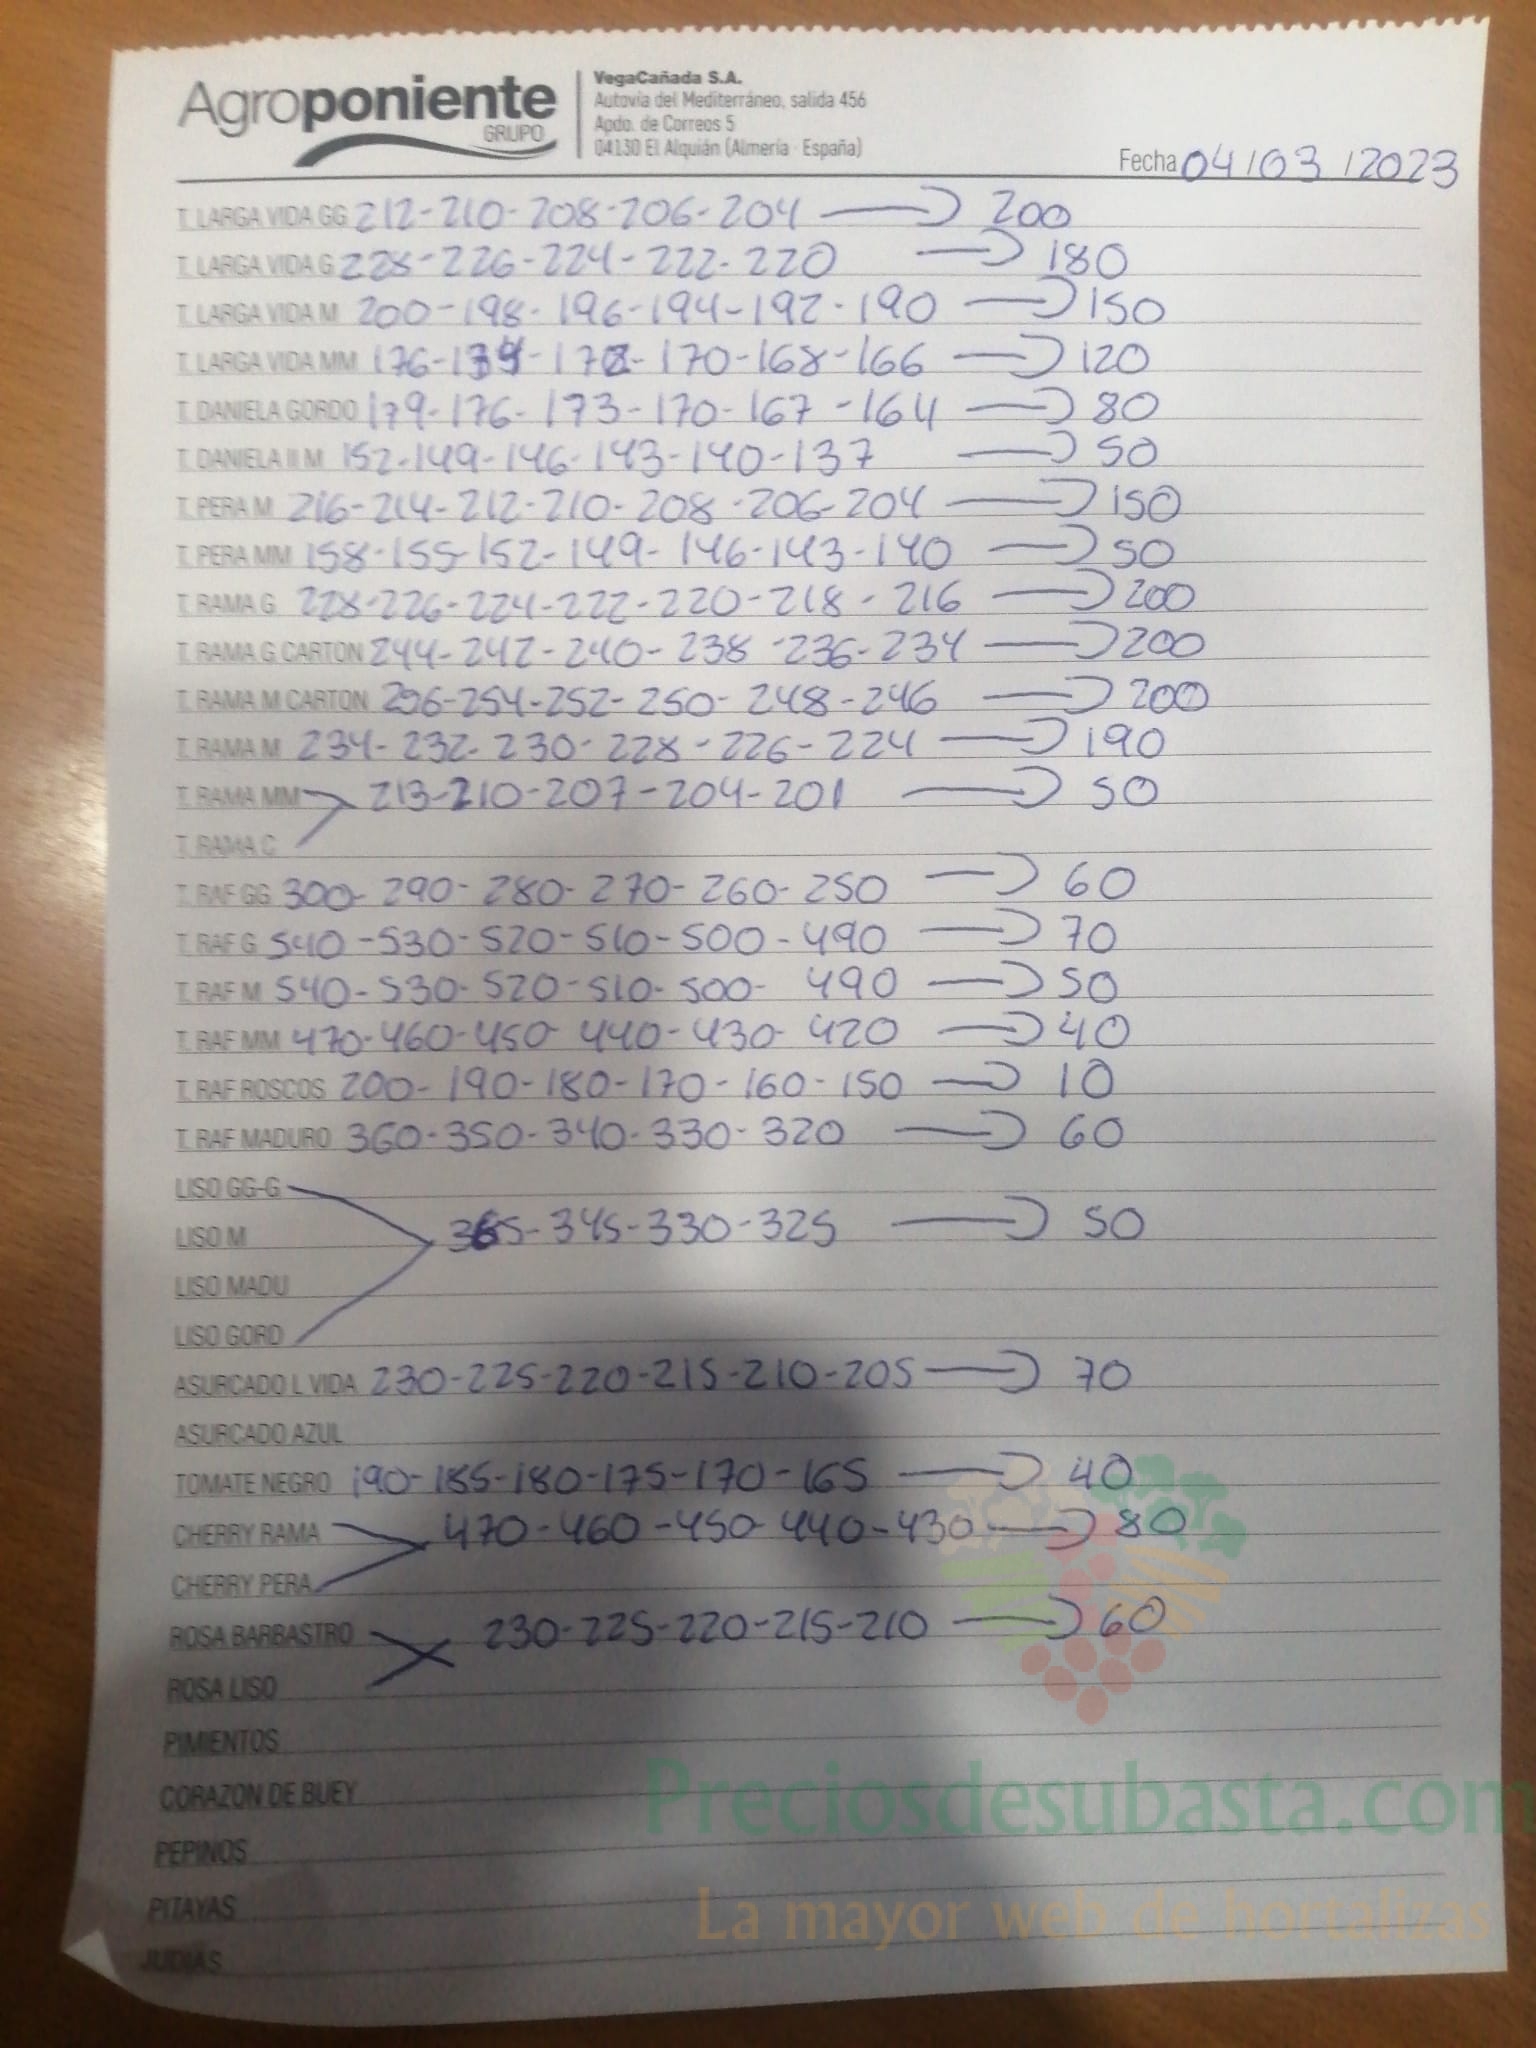 Agroponiente
GRUPO
VegaCañada S.A.
Autovía del Mediterráneo, salida 456
Apdo. de Correos 5
04130 El Alquián (Almería - España)
Fecha 04/03/2023
T. LARGA VIDA GG 212-210-208-206-204 200
T. LARGA VIDA G 228-226-224-222-220 180
T. LARGA VIDA M 200-198-196-194-192-190 150
T. LARGA VIDA MM 176-174-172-170-168-166 120
T. DANIELA GORDO 179-176-173-170-167-164 80
T. DANIELA II M 152-149-146-143-140-137 50
T. PERA M 216-214-212-210-208-206-204 150
T. PERA MM 158-155-152-149-146-143-140 50
T. RAMA G 228-226-224-222-220-218-216 200
T. RAMA G CARTON 244-242-240-238-236-234 200
T. RAMA M CARTON 256-254-252-250-248-246 200
T. RAMA M 234-232-230-228-226-224 190
T. RAMA MM 213-210-207-204-201 50
T. RAMA C
T. RAF GG 300-290-280-270-260-250 60
T. RAF G 540-530-520-510-500-490 70
T. RAF M 540-530-520-510-500-490 50
T. RAF MM 470-460-450-440-430-420 40
T. RAF ROSCOS 200-190-180-170-160-150 10
T. RAF MADURO 360-350-340-330-320 60
LISO GG-G
LISO M 365-345-330-325 50
LISO MADU
LISO GORD
ASURCADO L VIDA 230-225-220-215-210-205 70
ASURCADO AZUL
TOMATE NEGRO 190-185-180-175-170-165 40
CHERRY RAMA 470-460-450-440-430 80
CHERRY PERA
ROSA BARBASTRO 230-225-220-215-210 60
ROSA LISO
PIMIENTOS
CORAZON DE BUEY
PEPINOS
PITAYAS
JUDIAS
Preciosdesubasta.com
La mayor web de hortalizas